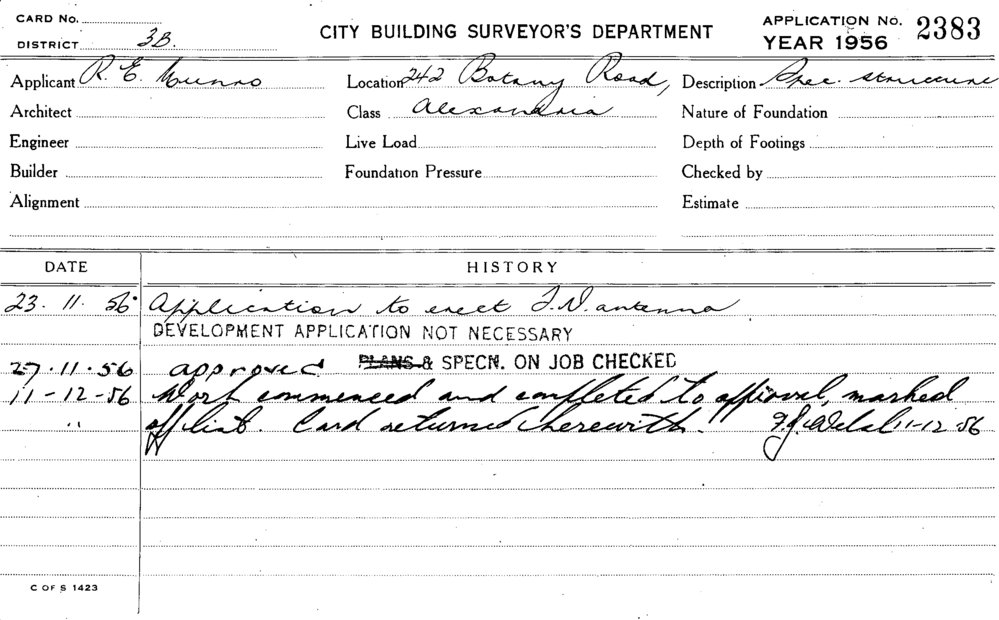 CARD No.
DISTRICT 3B.
CITY BUILDING SURVEYOR'S DEPARTMENT
APPLICATION No. 2383
YEAR 1956
Applicant R. E. Munro
Location 242 Botany Road,
Description Spec. structure
Architect
Class Alexandria
Nature of Foundation
Engineer
Live Load
Depth of Footings
Builder
Foundation Pressure
Checked by
Alignment
Estimate
DATE
HISTORY
23. 11. 56 Application to erect T.V. antenna
DEVELOPMENT APPLICATION NOT NECESSARY
27.11.56 approved PLANS & SPECN. ON JOB CHECKED
11-12-56 Work commenced and completed to approval, marked
" off list. Card returned herewith. 11-12-56
C OF S 1423